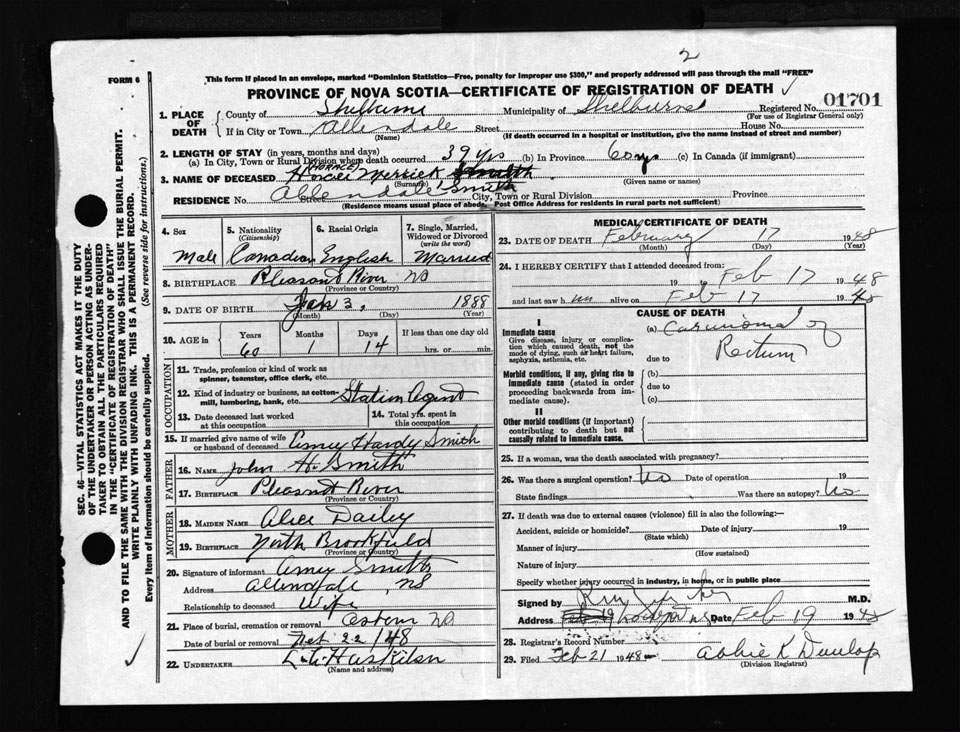 2
This form if placed in an envelope, marked "Dominion Statistics—Free, penalty for improper use $300," and properly addressed will pass through the mail "FREE"
FORM 6
PROVINCE OF NOVA SCOTIA—CERTIFICATE OF REGISTRATION OF DEATH
01701
1. PLACE OF DEATH
County of Shelburne Municipality of Shelburne Registered No.
(For use of Registrar General only)
If in City or Town Allendale Street House No.
(Name) (If death occurred in a hospital or institution, give the name instead of street and number)
2. LENGTH OF STAY (in years, months and days)
(a) In City, Town or Rural Division where death occurred 39 yrs (b) In Province 60 yrs (c) In Canada (if immigrant)
HORACE
3. NAME OF DECEASED Merrick Smith
(Surname) (Given name or names)
Smith
RESIDENCE No. Allendale City, Town or Rural Division Province
Street
(Residence means usual place of abode. Post Office Address for residents in rural parts not sufficient)
4. Sex
Male
5. Nationality
(Citizenship)
Canadian
6. Racial Origin
English
7. Single, Married, Widowed or Divorced
(write the word)
Married
8. BIRTHPLACE Pleasant River NS
(Province or Country)
9. DATE OF BIRTH Jan 3, 1888
(Month) (Day) (Year)
10. AGE in
Years Months Days If less than one day old
60 1 14 hrs. or min.
OCCUPATION
11. Trade, profession or kind of work as spinner, teamster, office clerk, etc.
12. Kind of industry or business, as cotton-mill, lumbering, bank, etc. Station Agent
13. Date deceased last worked at this occupation
14. Total yrs. spent in this occupation
15. If married give name of wife or husband of deceased Amy Hardy Smith
FATHER
16. NAME John H. Smith
17. BIRTHPLACE Pleasant River
(Province or Country)
MOTHER
18. MAIDEN NAME Alice Dailey
19. BIRTHPLACE North Brookfield
(Province or Country)
20. Signature of informant Amy Smith
Address Allendale, NS
Relationship to deceased Wife
21. Place of burial, cremation or removal NS
Date of burial or removal Feb 22 / 48
22. UNDERTAKER
(Name and address)
MEDICAL CERTIFICATE OF DEATH
23. DATE OF DEATH February 17 1948
(Month) (Day) (Year)
24. I HEREBY CERTIFY that I attended deceased from:
19 Feb 17 1948
and last saw h im alive on Feb 17 1948
CAUSE OF DEATH
I
Immediate cause
Give disease, injury or complication which caused death, not the mode of dying, such as heart failure, asphyxia, asthenia, etc.
(a) Carcinoma of
Rectum
due to
Morbid conditions, if any, giving rise to immediate cause (stated in order proceeding backwards from immediate cause).
(b)
due to
(c)
II
Other morbid conditions (if important) contributing to death but not causally related to immediate cause.
25. If a woman, was the death associated with pregnancy?
26. Was there a surgical operation? No Date of operation 19
State findings Was there an autopsy? No
27. If death was due to external causes (violence) fill in also the following:—
Accident, suicide or homicide? Date of injury 19
(State which)
Manner of injury
(How sustained)
Nature of injury
Specify whether injury occurred in industry, in home, or in public place
Signed by M.D.
Address Feb 19 Lockeport NS Date Feb 19 1948
28. Registrar's Record Number
29. Filed Feb 21 1948 Abbie K Dunlop
(Division Registrar)
SEC. 46—VITAL STATISTICS ACT MAKES IT THE DUTY
OF THE UNDERTAKER OR PERSON ACTING AS UNDER-
TAKER TO OBTAIN ALL THE PARTICULARS REQUIRED
IN THE "CERTIFICATE OF REGISTRATION OF DEATH"
AND TO FILE THE SAME WITH THE DIVISION REGISTRAR WHO SHALL ISSUE THE BURIAL PERMIT.
WRITE PLAINLY WITH UNFADING INK. THIS IS A PERMANENT RECORD.
Every item of information should be carefully supplied. (See reverse side for instructions.)